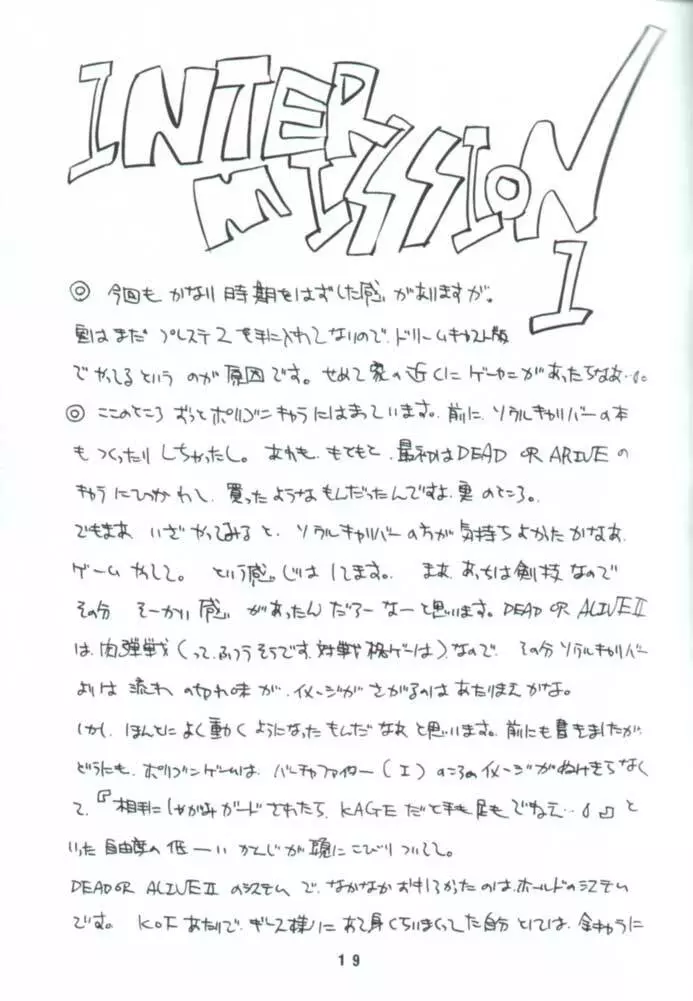 INTER
MISSION
I
◎ 今回も かなり時期をはずした感じがありますが。
実はまだ プレステ2を手に入れてないので、ドリームキャスト版
でやってるという のが 原因です。せめて家の近くにゲーセンがあったらなあ…。
◎ ここのところ ずっとポリゴンキャラにはまっています。前に、ソウルキャリバーの本
もつくったりしちゃったし。あれも、もともと、最初はDEAD OR ARIVEの
キャラにひかれて、買ったようなもんだったんですよ、実のところ。
でもまあ いざ やってみると、ソウルキャリバーの方が気持ちよかったかなあ、
ゲームやしてて。 という感じはしてます。 まあ、あっちは剣技なので
その分 そーかい感が があったんだろーなーと思います。DEAD OR ALIVE II
は、肉弾戦(って、ふつうそうです、対戦格ゲーは)なので、その分ソウルキャリバー
よりは 流れ の切れ味が、イメージがさがるのはあたりまえかな。
しかし、ほんとによく動くようになったもんだなあと思います。前にも書きましたが、
どうにも、ポリゴンゲームは、バーチャファイター(I)のころのイメージがぬけきらなく
て、『相手にしゃがみガードされたら、KAGEだと手も足もでねえ…』と
いった自由度の低ーい かんじが頭にこびりついてて。
DEAD OR ALIVE IIのシステムで、なかなかおもしろかったのは、ホールドのシステム
です。 KOFあたりで、ギース様に あて身くらいまくってた自分としては、全キャラに
19